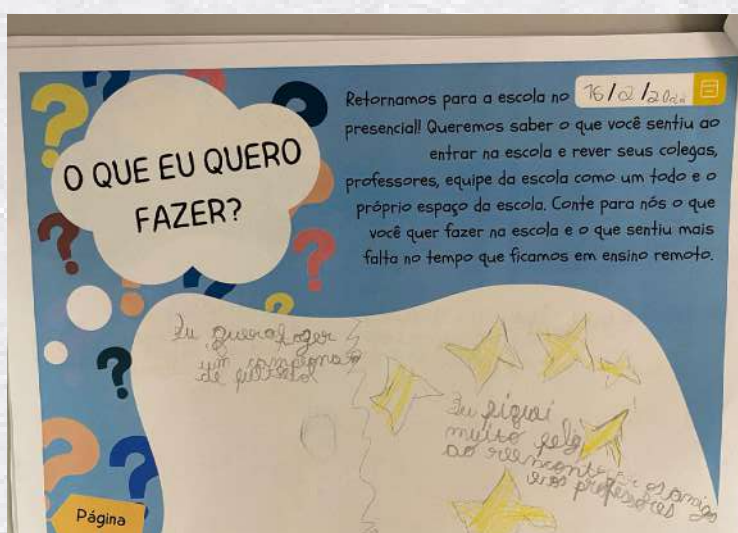 O QUE EU QUERO
FAZER?
Retornamos para a escola no 16/2/202
presencial! Queremos saber o que você sentiu ao
entrar na escola e rever seus colegas,
professores, equipe da escola como um todo e o
próprio espaço da escola. Conte para nós o que
você quer fazer na escola e o que sentiu mais
falta no tempo que ficamos em ensino remoto.
Eu quero fazer
um campeona
de futebol
Eu fiquei
muito feliz
ao reencontrar os amigos
e os professores
Página